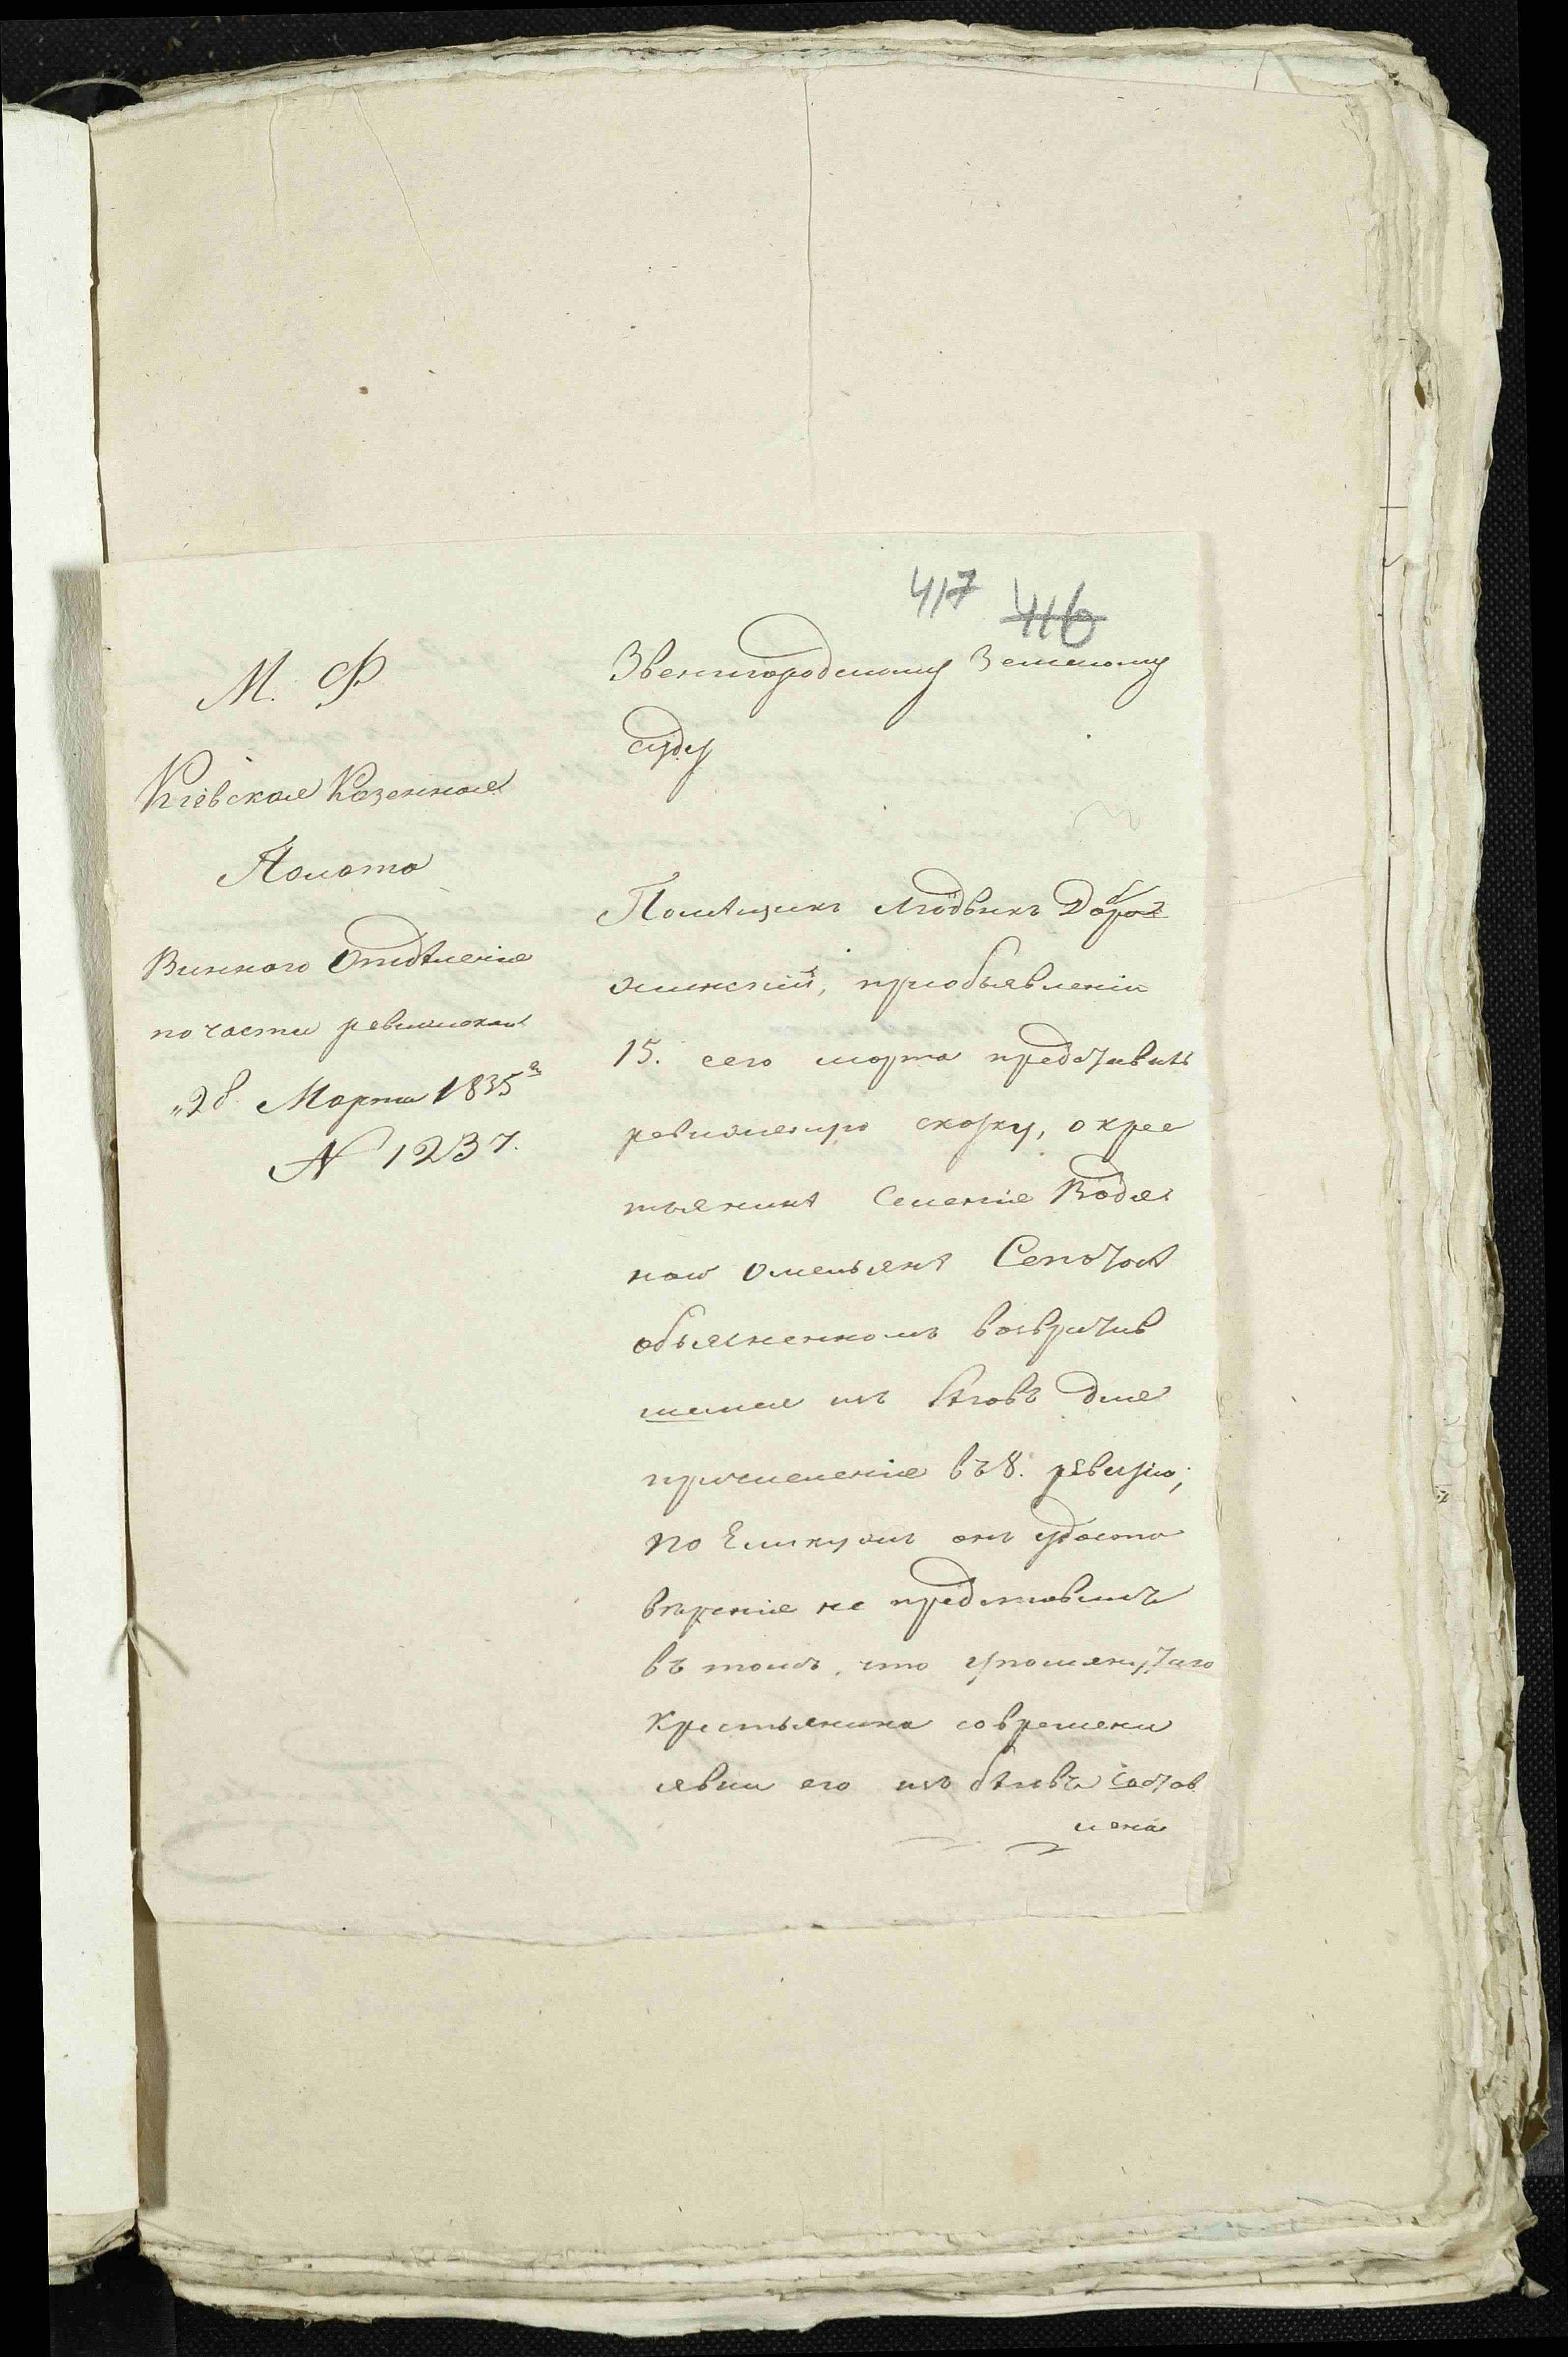 417 416
М. Ф.
Кіевская Казенная
Палата
Виннаго Отдѣленія
по части ревизской
"28 Марта 1835 г.
N 1237.
Звенигородскому Земскому
суду
Помѣщикъ Людвикъ
жинскій, приобъявленіи
15. сего марта представилъ
ревизскую сказку, о крес
тьянинѣ Селенія Водя
ной Омельянѣ
объясненномъ возвратив
шемся изъ бѣговъ для
причисленія въ 8. ревизію;
но Еликужъ онъ удосто
вѣренія не представилъ
въ томъ, что упомянутаго
крестьянина со времени
явки его изъ бѣговъ состав
лена